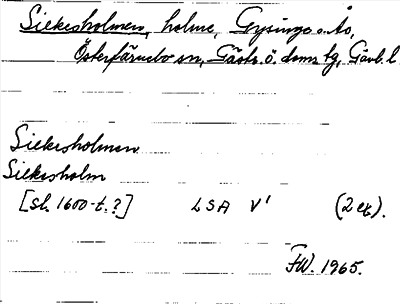 Siekesholmen, holme, Gysinge o. Åo,
Österfärnebo sn, Gästr. ö. doms tg, Gävl. l.
Siekesholmen
Siekesholm
[sl. 1600-t.?] LSA V¹ (2 ex).
FW. 1965.